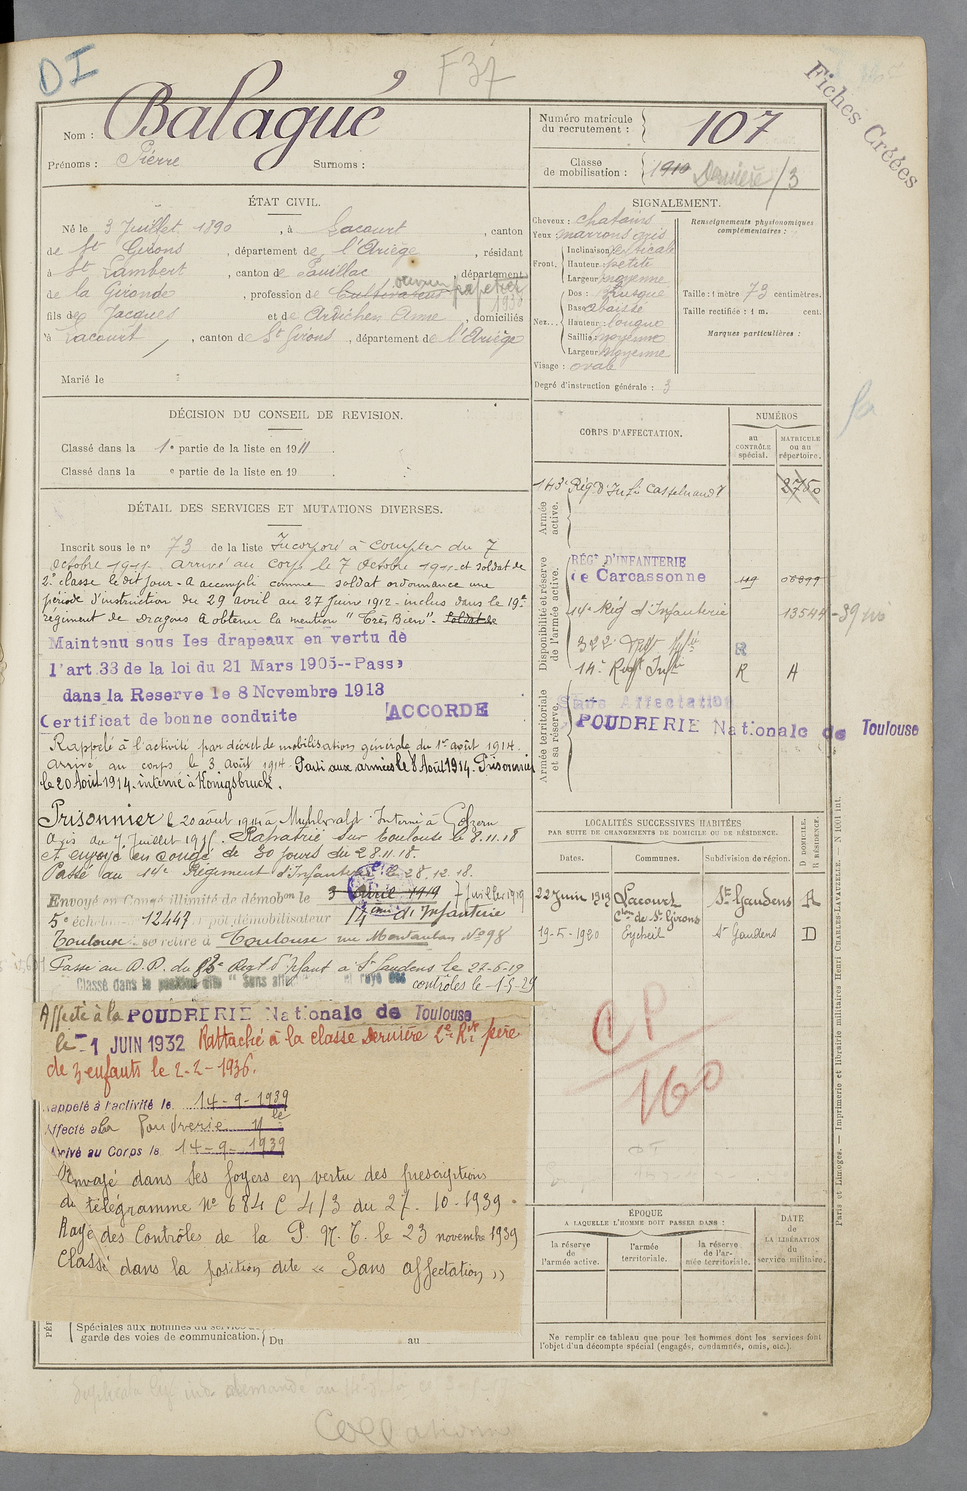 DI
F37
Fiches Créées
Nom : Balagué
Prénoms : Pierre Surnoms :
Numéro matricule du recrutement : 107
Classe de mobilisation : 1910 Dernière /3
ÉTAT CIVIL.
Né le 3 Juillet 1890, à Lacourt, canton
de St Girons, département de l'Ariège, résidant
à St Lambert, canton de Pauillac, département
de la Gironde, profession de Cultivateur ouvrier papetier 1930
fils de Jacques et de Ardichen Anne, domiciliés
à Lacourt, canton de St Girons, département de l'Ariège
Marié le
SIGNALEMENT.
Cheveux : chatains
Yeux marrons gris
Front. Inclinaison verticale
Hauteur petite
Largeur moyenne
Nez. Dos : Busqué
Base abaissé
Hauteur longue
Saillie moyenne
Largeur moyenne
Visage : ovale
Renseignements physionomiques complémentaires :
Taille : 1 mètre 73 centimètres.
Taille rectifiée : 1 m. cent.
Marques particulières :
Degré d'instruction générale : 3
DÉCISION DU CONSEIL DE REVISION.
Classé dans la 1e partie de la liste en 1911.
Classé dans la e partie de la liste en 19
DÉTAIL DES SERVICES ET MUTATIONS DIVERSES.
Inscrit sous le no 73 de la liste Incorporé à compter du 7
octobre 1911. arrivé au corps le 7 Octobre 1911 et soldat de
2e classe le dit jour - A accompli comme soldat ordonnance une
période d'instruction du 29 avril au 27 Juin 1912 - inclus dans le 19e
régiment de Dragons a obtenu la mention "Très Bien". Soldat de
Maintenu sous les drapeaux en vertu de
l'art 33 de la loi du 21 Mars 1905--Passé
dans la Reserve le 8 Novembre 1913
Certificat de bonne conduite ACCORDÉ
Rappelé à l'activité par décret de mobilisation générale du 1er août 1914.
Arrivé au corps le 3 août 1914. Parti aux armées le 8 Août 1914. Prisonnier
le 20 Août 1914. interné à Königsbruck.
Prisonnier le 20 août 1914 à Interné à Golzern
avis du 7 Juillet 1915. Rapatrié sur Toulouse le 8.11.18
et envoyé en congé de 30 jours du 28.11.18.
Passé au 14e Régiment d'Infanterie le 28.12.18.
Envoyé en Congé illimité de démobon le 3 Avril 1919 7 Juillet 1919
5e échelon 12443 dépôt démobilisateur 14 d'Infanterie
Toulouse se retire à Toulouse rue Montauban No 98
Passé au D.D. du 83e Regt d'Infant à St Gaudens le 27-6-19
Classé dans la position dite "Sans affectation" et rayé des contrôles le 1-5-29
Affecté à la POUDRERIE Nationale de Toulouse
le 1 JUIN 1932 Rattaché à la classe Dernière 2e Rve père
de 3 enfants le 2-2-1936.
Rappelé à l'activité le 14-9-1939
Affecté à la Poudrerie Nle
Arrivé au Corps le 14-9-1939
Renvoyé dans ses foyers en vertu des prescriptions
du télégramme No 684 C 4/3 du 27-10-1939.
Rayé des Contrôles de la P. N. T. le 23 novembre 1939
Classé dans la position dite « Sans affectation »
Spéciales aux hommes du service de
garde des voies de communication. Du au
CORPS D'AFFECTATION.
NUMÉROS
au CONTRÔLE spécial.
MATRICULE ou au répertoire.
Armée active.
143e Rég. d'Infie Castelnaudy 2760
Disponibilité et réserve de l'armée active.
RÉGt D'INFANTERIE
de Carcassonne
14e Rég d'Infanterie 13544 - 39
322 Infie R
14e Regt Infie R A
Armée territoriale et sa réserve.
Sans Affectation
POUDRERIE Nationale de Toulouse
LOCALITÉS SUCCESSIVES HABITÉES
PAR SUITE DE CHANGEMENTS DE DOMICILE OU DE RÉSIDENCE.
Dates. Communes. Subdivision de région. D DOMICILE. R RÉSIDENCE.
22 Juin 1913 Lacourt Cton de St Girons St Gaudens R
19-5-1920 Eycheil St Gaudens D
CP
160
ÉPOQUE
A LAQUELLE L'HOMME DOIT PASSER DANS :
la réserve de l'armée active.
l'armée territoriale.
la réserve de l'armée territoriale.
DATE de LA LIBÉRATION du service militaire.
Ne remplir ce tableau que pour les hommes dont les services font
l'objet d'un décompte spécial (engagés, condamnés, omis, etc.).
Paris et Limoges. — Imprimerie et librairie militaires Henri CHARLES-LAVAUZELLE. — N 1001 int.
Collationné